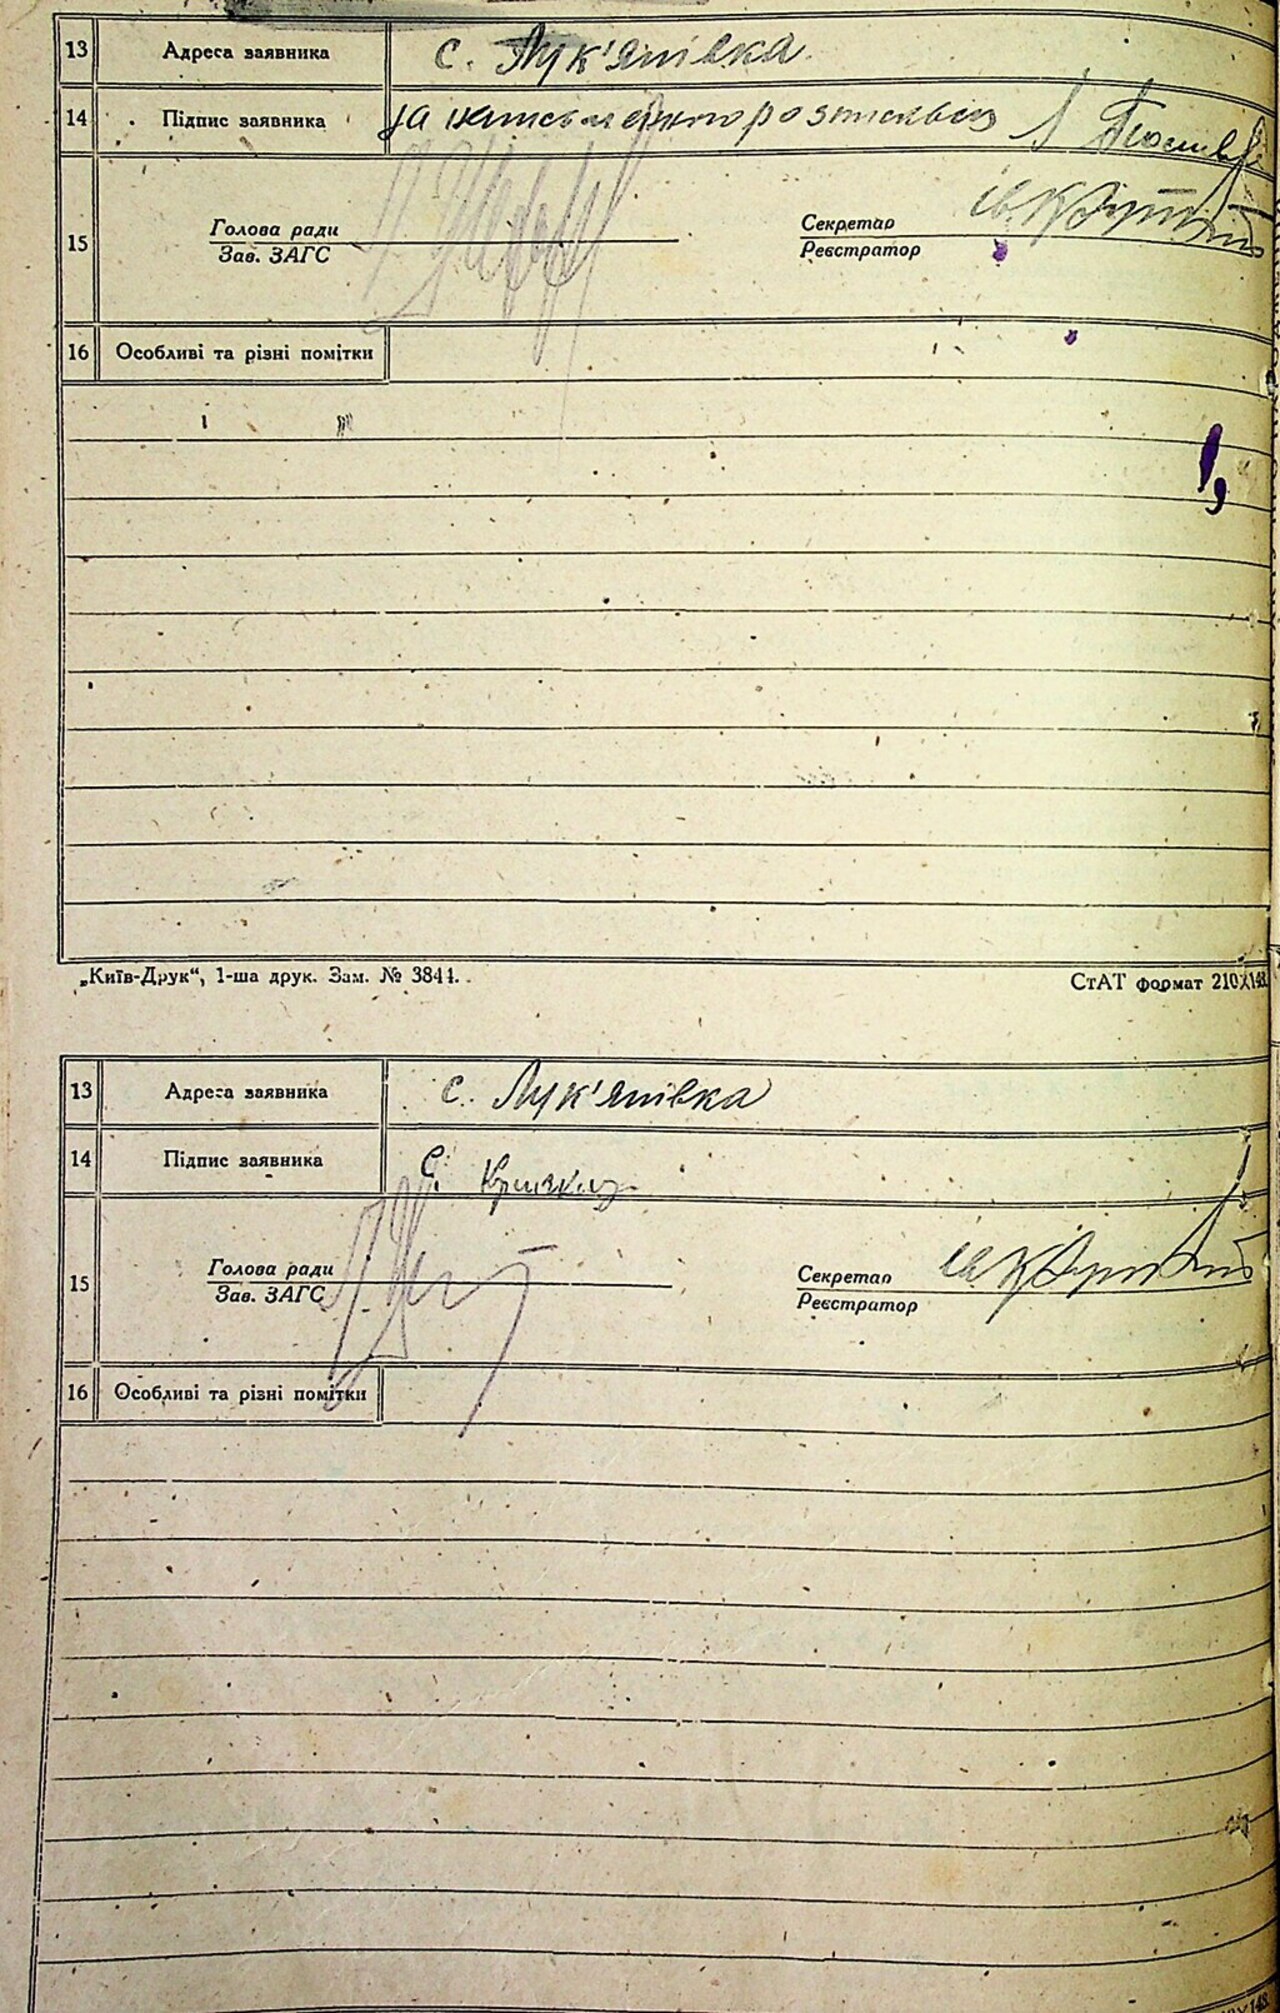 13 Адреса заявника с. Лук'янівка
14 Підпис заявника за
15 Голова ради Секретар
Зав. ЗАГС Реєстратор
16 Особливі та різні помітки
„Київ-Друк“, 1-ша друк. Зам. № 3844. СтАТ формат 210×148
13 Адреса заявника с. Лук'янівка
14 Підпис заявника С.
15 Голова ради Секретар
Зав. ЗАГС Реєстратор
16 Особливі та різні помітки